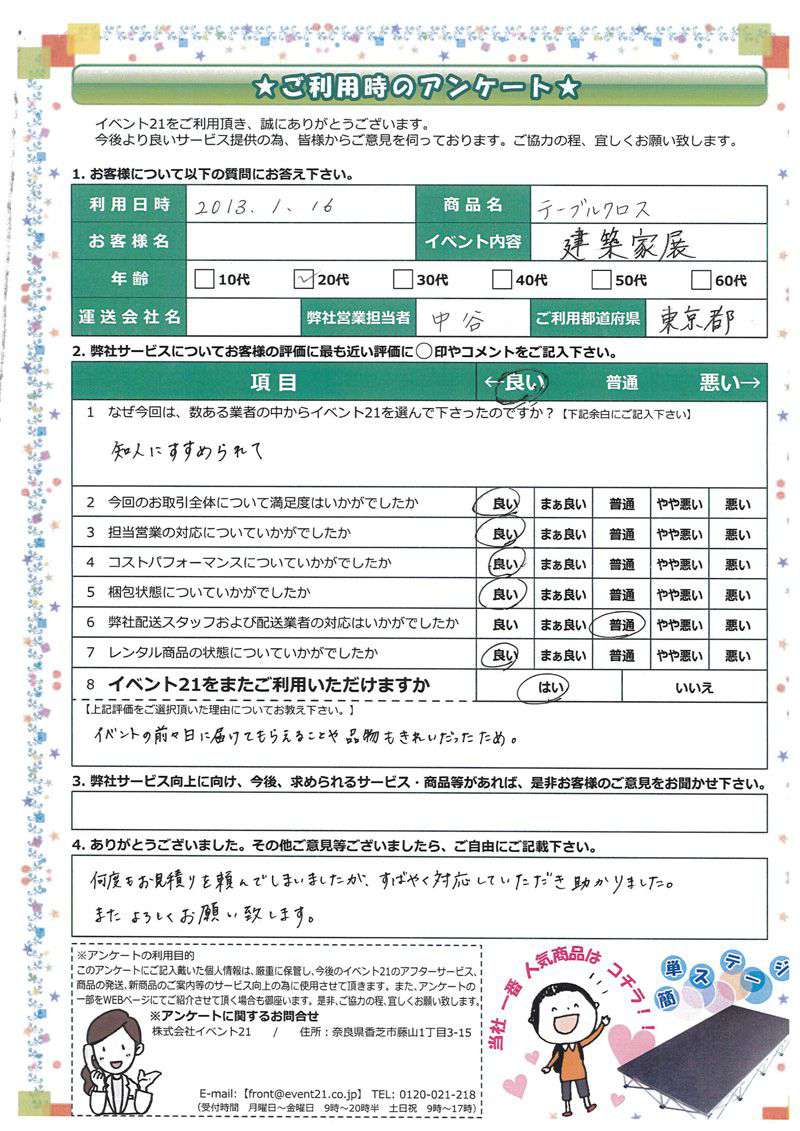 ★ご利用時のアンケート★
イベント21をご利用頂き、誠にありがとうございます。
今後より良いサービス提供の為、皆様からご意見を伺っております。ご協力の程、宜しくお願い致します。
1. お客様について以下の質問にお答え下さい。
利用日時 2013. 1. 16 商品名 テーブルクロス
お客様名 イベント内容 建築家展
年齢 10代 20代 30代 40代 50代 60代
運送会社名 弊社営業担当者 中谷 ご利用都道府県 東京都
2. 弊社サービスについてお客様の評価に最も近い評価に○印やコメントをご記入下さい。
項目 ←良い 普通 悪い→
1 なぜ今回は、数ある業者の中からイベント21を選んで下さったのですか？【下記余白にご記入下さい】
知人にすすめられて
2 今回のお取引全体について満足度はいかがでしたか 良い まぁ良い 普通 やや悪い 悪い
3 担当営業の対応についていかがでしたか 良い まぁ良い 普通 やや悪い 悪い
4 コストパフォーマンスについていかがでしたか 良い まぁ良い 普通 やや悪い 悪い
5 梱包状態についていかがでしたか 良い まぁ良い 普通 やや悪い 悪い
6 弊社配送スタッフおよび配送業者の対応はいかがでしたか 良い まぁ良い 普通 やや悪い 悪い
7 レンタル商品の状態についていかがでしたか 良い まぁ良い 普通 やや悪い 悪い
8 イベント21をまたご利用いただけますか はい いいえ
【上記評価をご選択頂いた理由についてお教え下さい。】
イベントの前々日に届けてもらえることや品物もきれいだったため。
3. 弊社サービス向上に向け、今後、求められるサービス・商品等があれば、是非お客様のご意見をお聞かせ下さい。
4. ありがとうございました。その他ご意見等ございましたら、ご自由にご記載下さい。
何度もお見積りを頼んでしまいましたが、すばやく対応していただき助かりました。
またよろしくお願い致します。
※アンケートの利用目的
このアンケートにご記入戴いた個人情報は、厳重に保管し、今後のイベント21のアフターサービス、
商品の発送、新商品のご案内等のサービス向上の為に使用させて頂きます。また、アンケートの
一部をWEBページにてご紹介させて頂く場合も御座います。是非、ご協力の程、宜しくお願い致します。
※アンケートに関するお問合せ
株式会社イベント21 / 住所：奈良県香芝市藤山1丁目3-15
E-mail:【front@event21.co.jp】 TEL: 0120-021-218
（受付時間 月曜日〜金曜日 9時〜20時半 土日祝 9時〜17時）
当社一番人気商品はコチラ！！
簡単ステージ